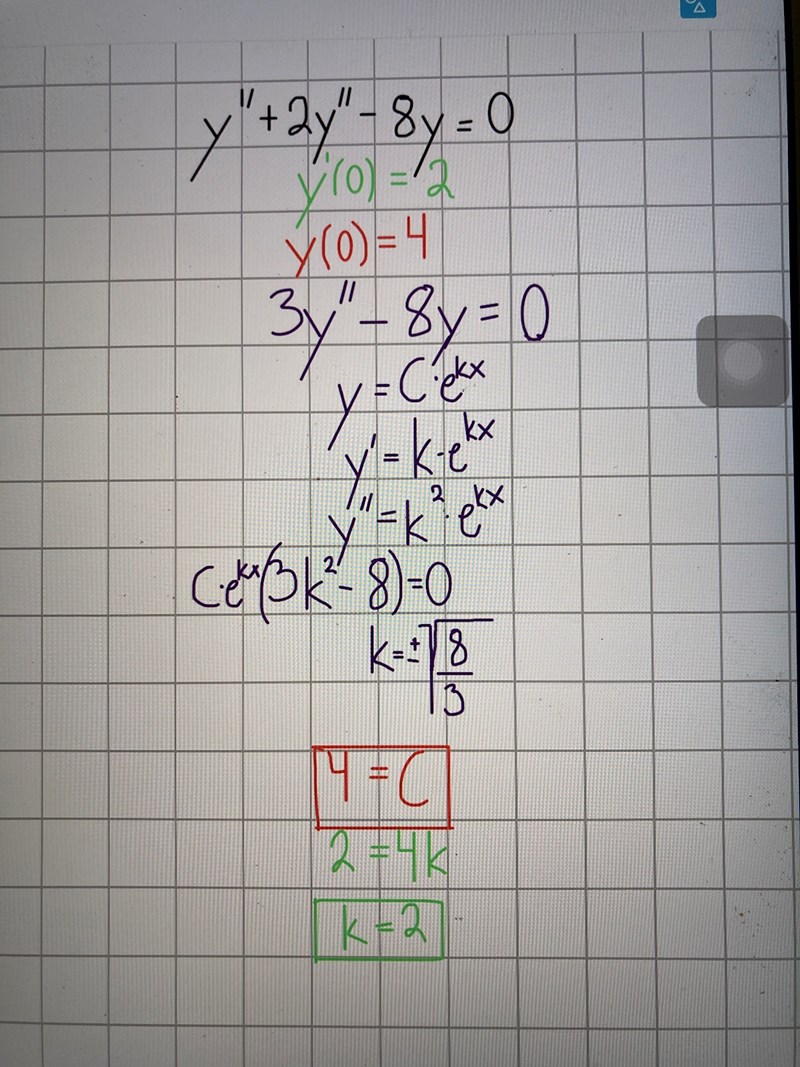 y'' + 2y'' - 8y = 0
y'(0) = 2
y(0) = 4
3y'' - 8y = 0
y = C·e^kx
y' = k·e^kx
y'' = k²·e^kx
C·e^kx(3k² - 8) = 0
k = ±√(8/3)
4 = C
2 = 4k
k = 2